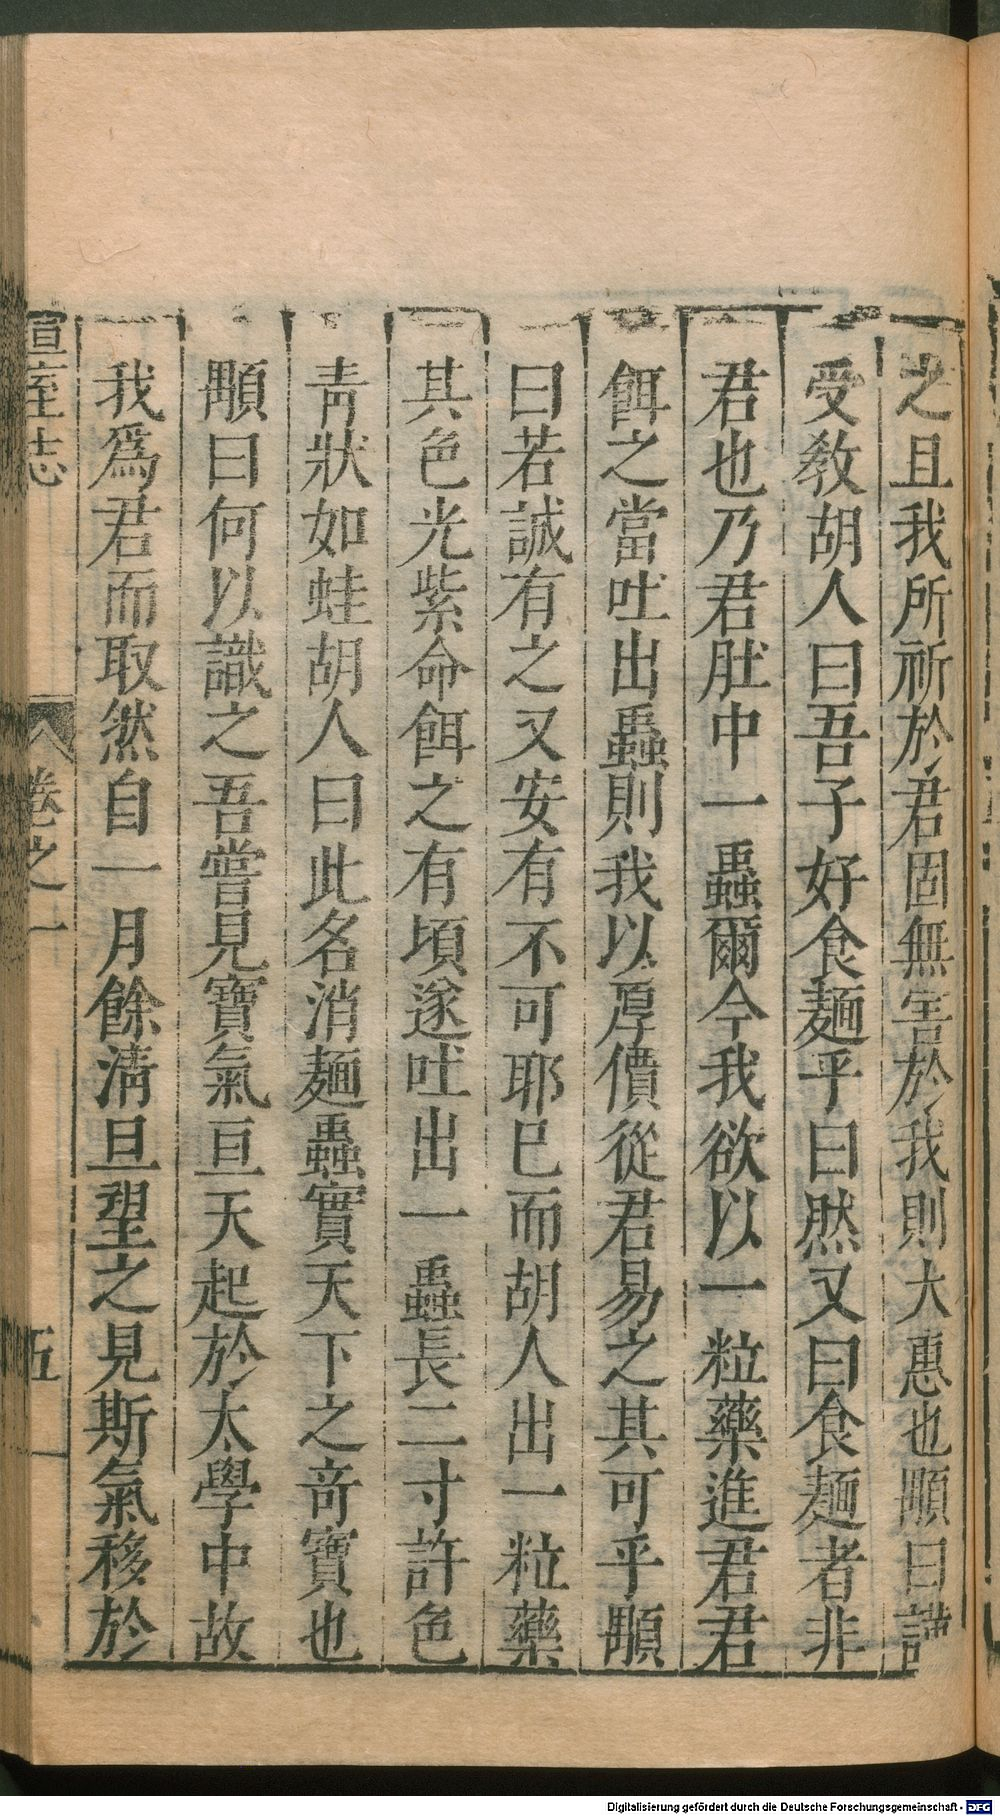 之且我所祈於君固無害於我則大惠也顒曰謹
受教胡人曰吾子好食麺乎曰然又曰食麺者非
君也乃君肚中一蟲爾今我欲以一粒藥進君君
餌之當吐出蟲則我以厚價從君易之其可乎顒
曰若誠有之又安有不可耶已而胡人出一粒藥
其色光紫命餌之有頃遂吐出一蟲長二寸許色
青狀如蛙胡人曰此名消麺蟲實天下之竒寶也
顒曰何以識之吾嘗見寶氣亘天起於太學中故
我爲君而取然自一月餘清旦望之見斯氣移於
宣室志
卷之一
五
Digitalisierung gefördert durch die Deutsche Forschungsgemeinschaft - DFG